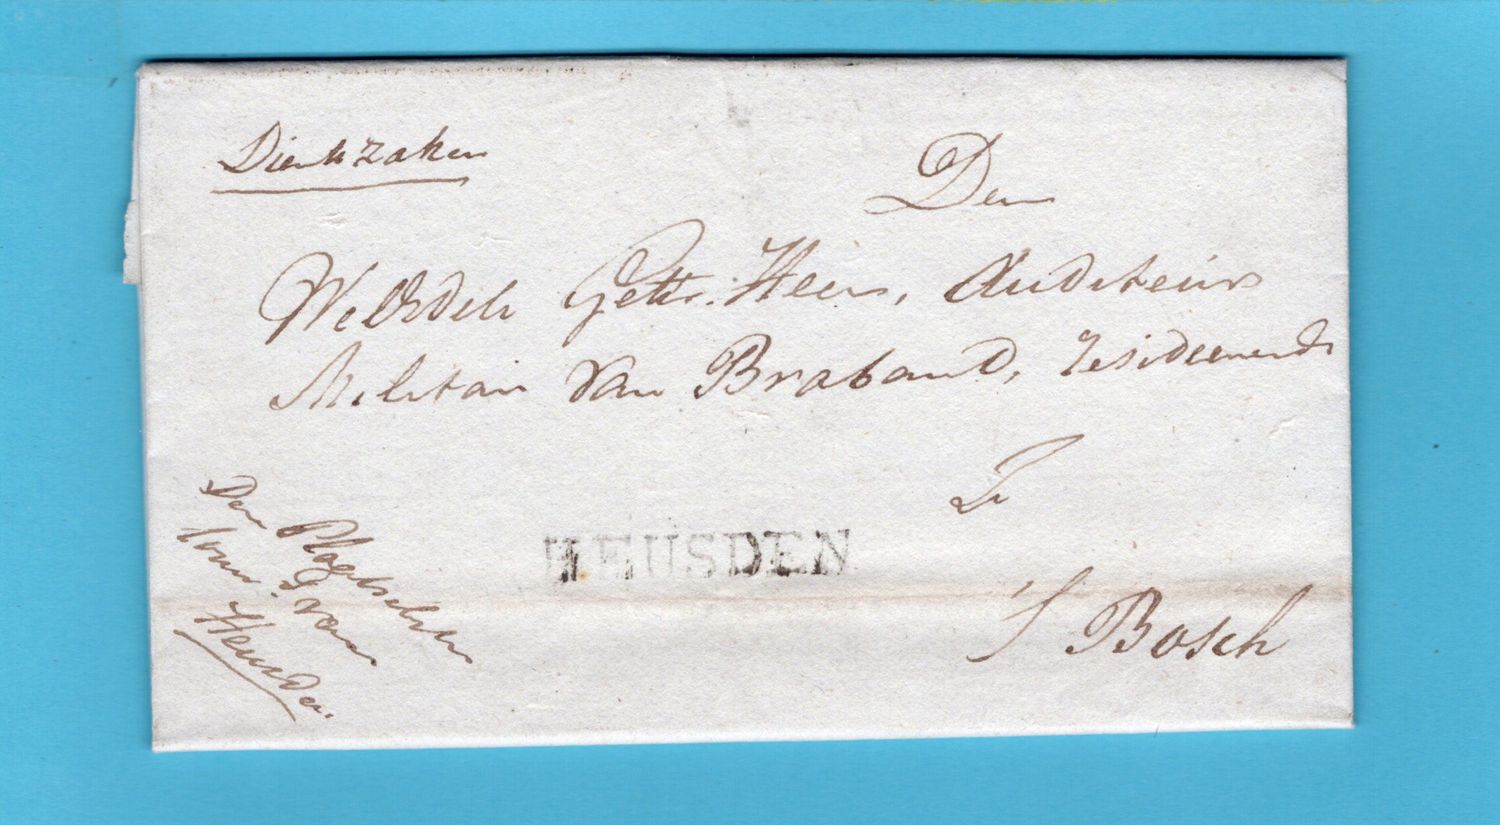 Dienstzaken
Den
WelEdele Gestr. Heer, Auditeur
Militair van Braband, resideerende
Te
S Bosch
HEUSDEN
Den
van
Heusden.